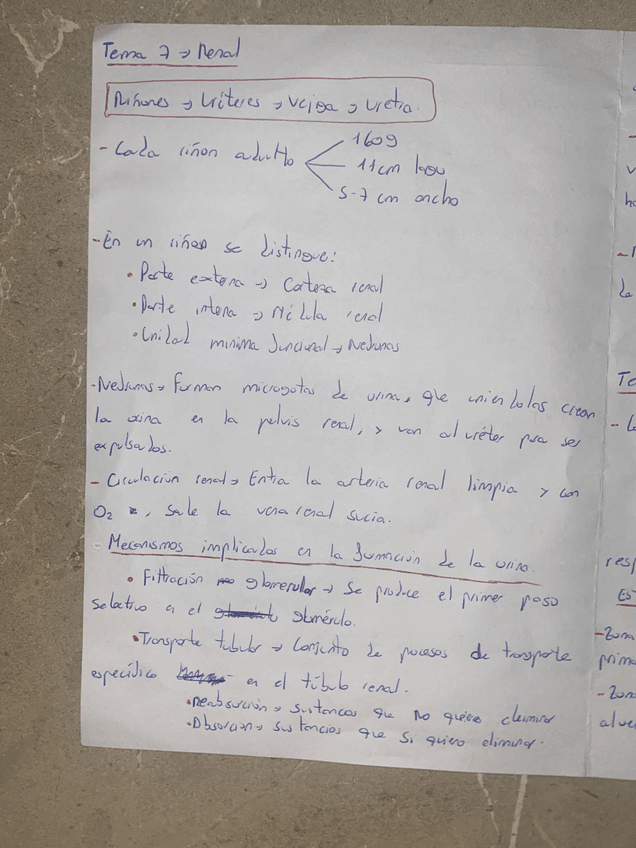 Tema 7 → Renal
Riñones → Uréteres → Vejiga → Uretra.
- Cada riñon adulto
160g
11cm largo
5-7 cm ancho
- En un riñon se distingue:
• Parte externa → Corteza renal
• Parte interna → Médula renal
• Unidad mínima funcional → Nefronas
- Nefronas → Forman microgotas de orina, que uniendolas crean
la orina en la pelvis renal, y van al uréter para ser
expulsados.
- Circulación renal → Entra la arteria renal limpia y con
O2, sale la vena renal sucia.
- Mecanismos implicados en la formación de la orina.
• Filtración glomerular → Se produce el primer paso
selectivo en el glomérulo.
• Transporte tubular → Conjunto de procesos de transporte
específico en el túbulo renal.
• Reabsorción → Sustancias que No quiero eliminar
• Absorción → Sustancias que Si quiero eliminar.
resp
Es
- Zona
prima
- Zona